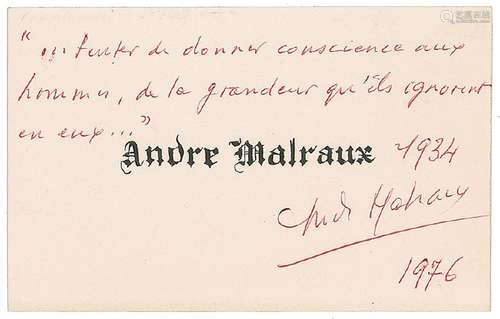 "... tenter de donner conscience aux
hommes, de la grandeur qu'ils ignorent
en eux..."
Andre Malraux 1934
André Malraux
1976